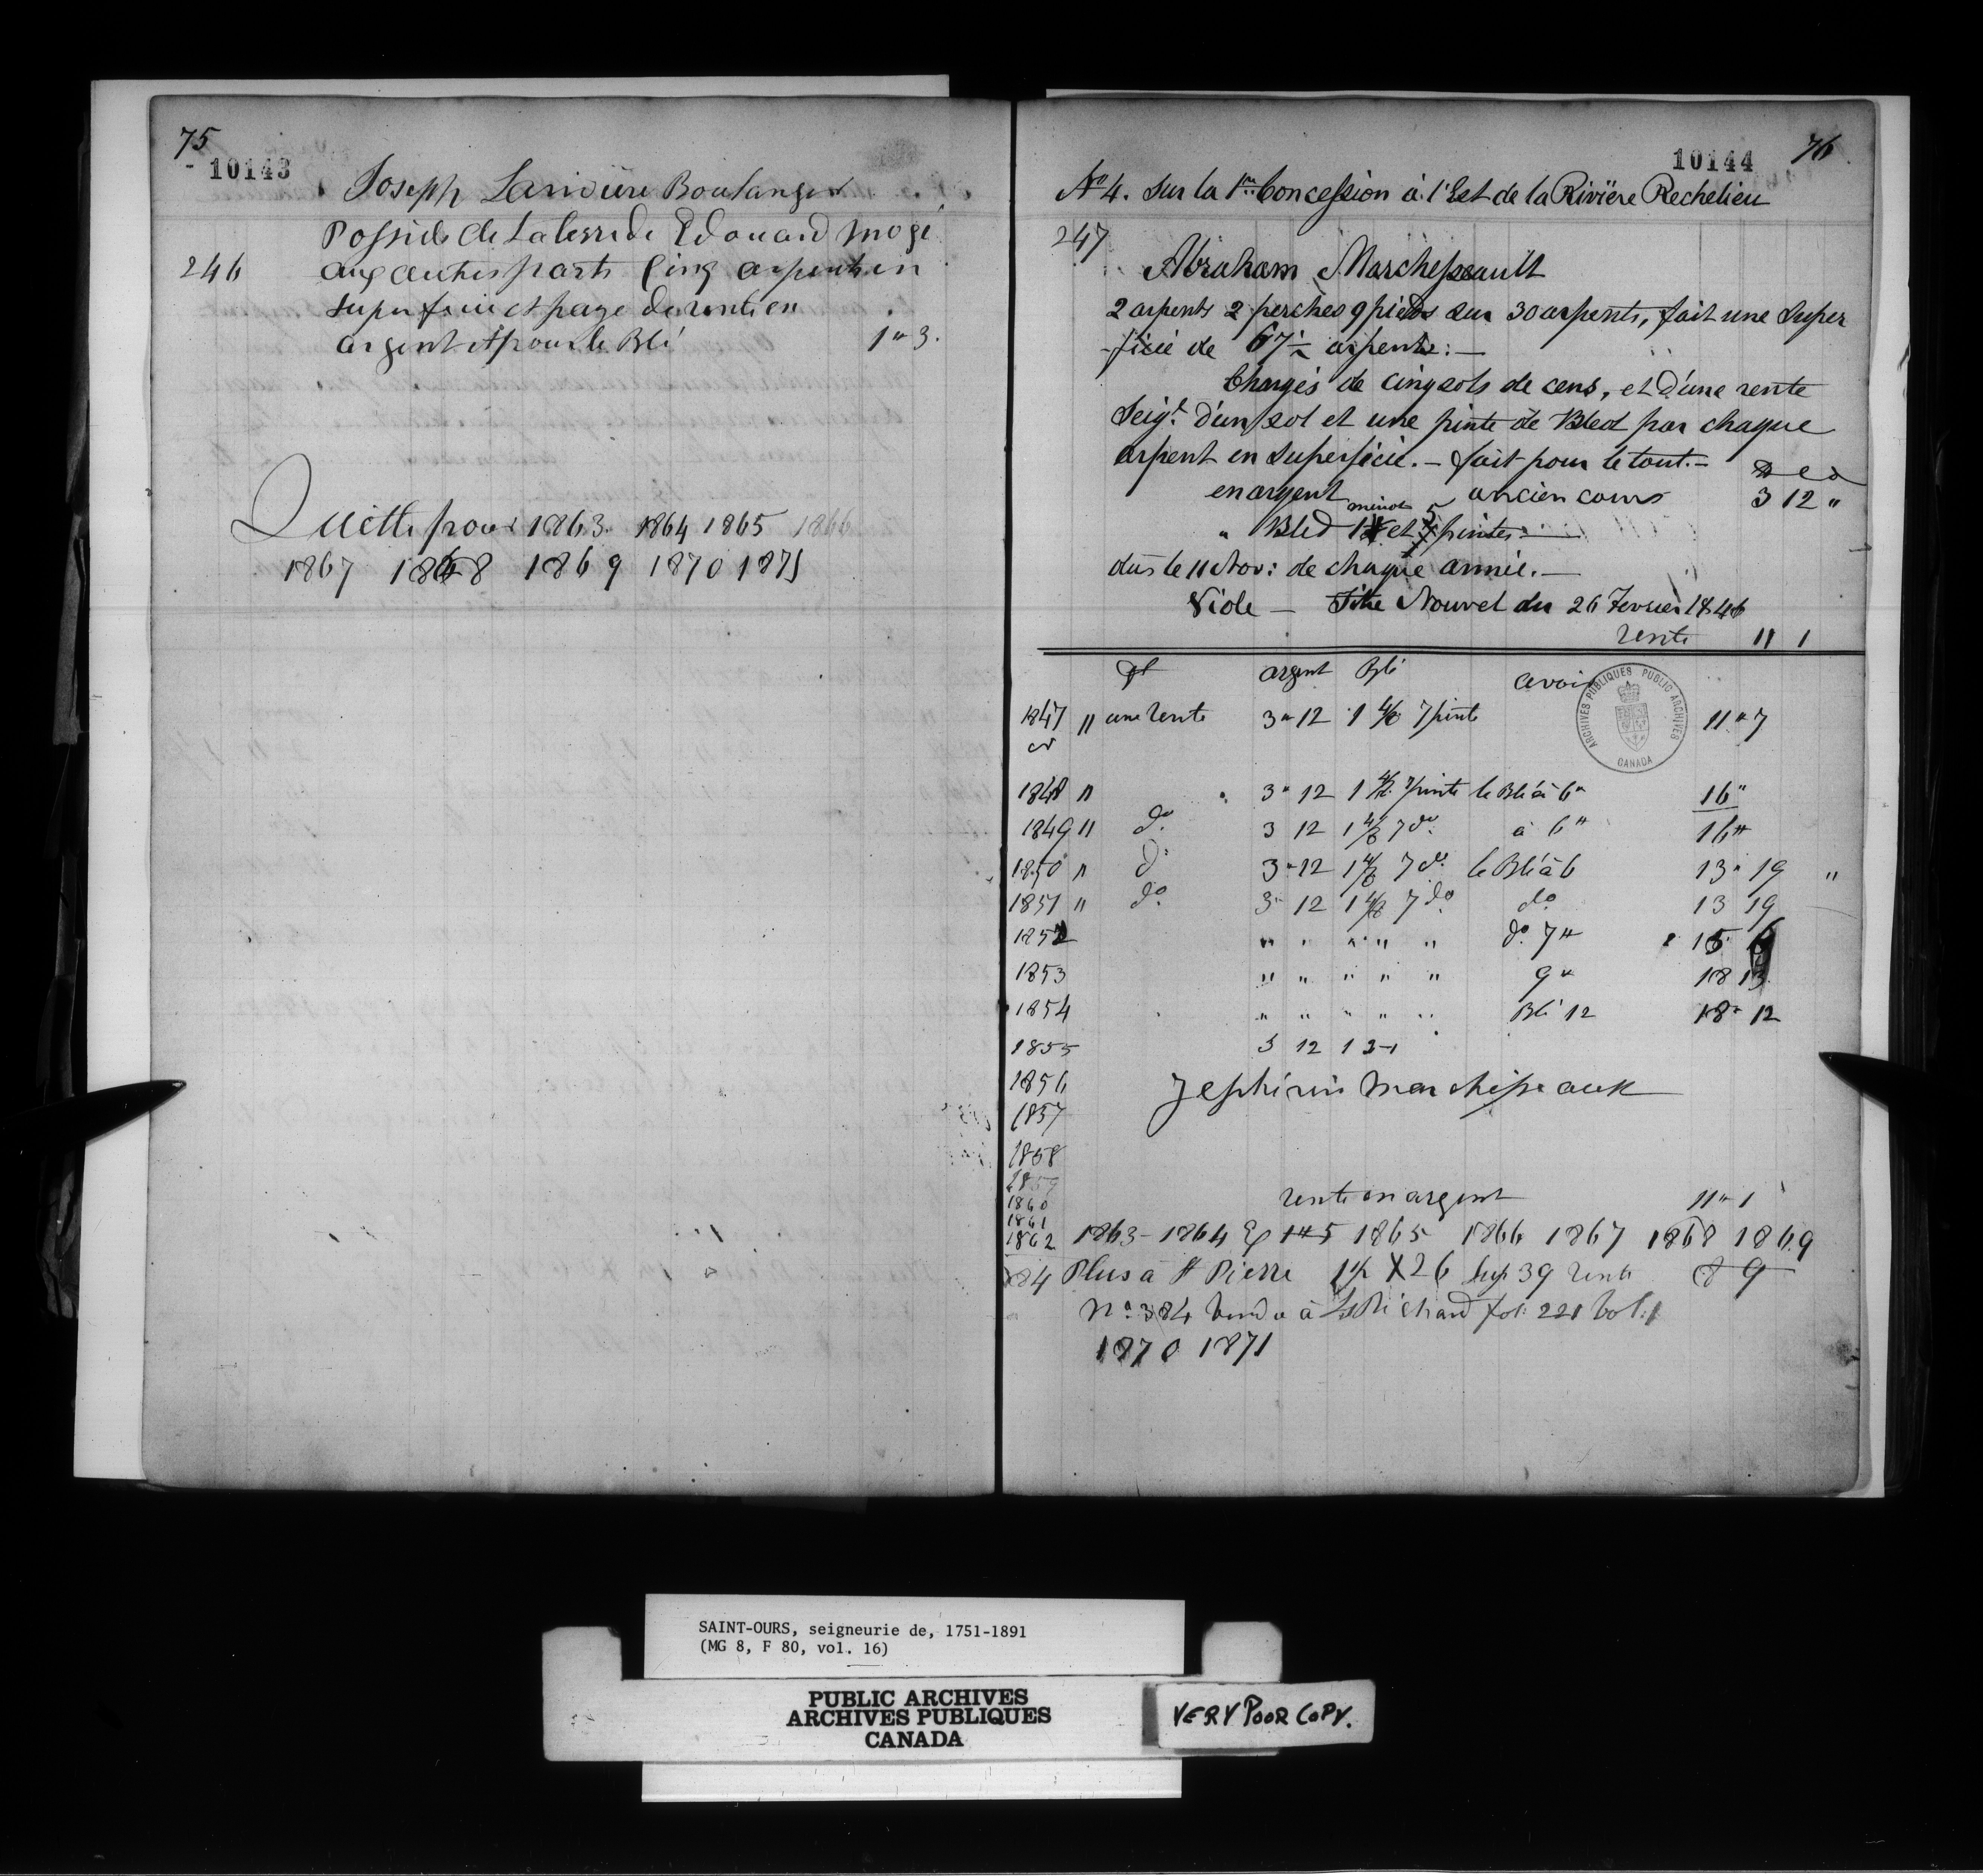 75
10143
Joseph Larivière Boulanger
Possede de la terre de Edouard Mogé
246 aux autres parts Cinq arpents en
superficie et paye de rente en
argent et pour le Blé 1 " 3.
Quitte pour 1863. 1864 1865 1866
1867 1868 1869 1870 1871
10144 76
No 4. Sur la 1re Concession à l'Est de la Rivière Rechelieu
247
Abraham Marchepeault
2 arpents 2 perches 9 pieds sur 30 arpents, fait une Super
-ficié de 67 ½ arpents: —
Chargés de cinq sols de cens, et d'une rente
Seigl. d'un sol et une pinte de Bled par chaque
arpent en superficié. — fait pour le tout. —
en argent ancien cours 3 12 "
minot 5
" Bled 1 et pintes —
dûs le 11 Nov: de chaque année. —
Vide — Titre Nouvel du 26 Fevrier 1846
rente 11 1
dt argent Blé avoir
1847 " une rente 3 " 12 1 4/8 7 pinte 11 " 7
1848 " 3 " 12 1 4/8 7 pinte le Blé à 6 " 16 "
1849 " do. 3 12 1 4/8 7 do. à 6 " 16 "
1850 " do 3 " 12 1 4/8 7 do. le Blé à 6 13 " 19 "
1851 " do. 3 " 12 1 4/8 7 do. do 13 19
1852 " " " " " do. 7 " 15 6
1853 " " " " " 9 " 18 13
1854 " " " " " Blé 12 18 " 12
1855 3 12 1
1856 Zephirin Marchepeault
1857
1858
1859
1860 rente en argent 11 " 1
1861
1862 1863 - 1864 1865 1866 1867 1868 1869
384 Plus à St Pierre 1½ X 26 Sup 39 rente 8 9
No. 384 vendu à Richard fol: 221 Vol: 1
1870 1871
ARCHIVES PUBLIQUES PUBLIC ARCHIVES
CANADA
SAINT-OURS, seigneurie de, 1751-1891
(MG 8, F 80, vol. 16)
PUBLIC ARCHIVES
ARCHIVES PUBLIQUES
CANADA
VERY POOR COPY.